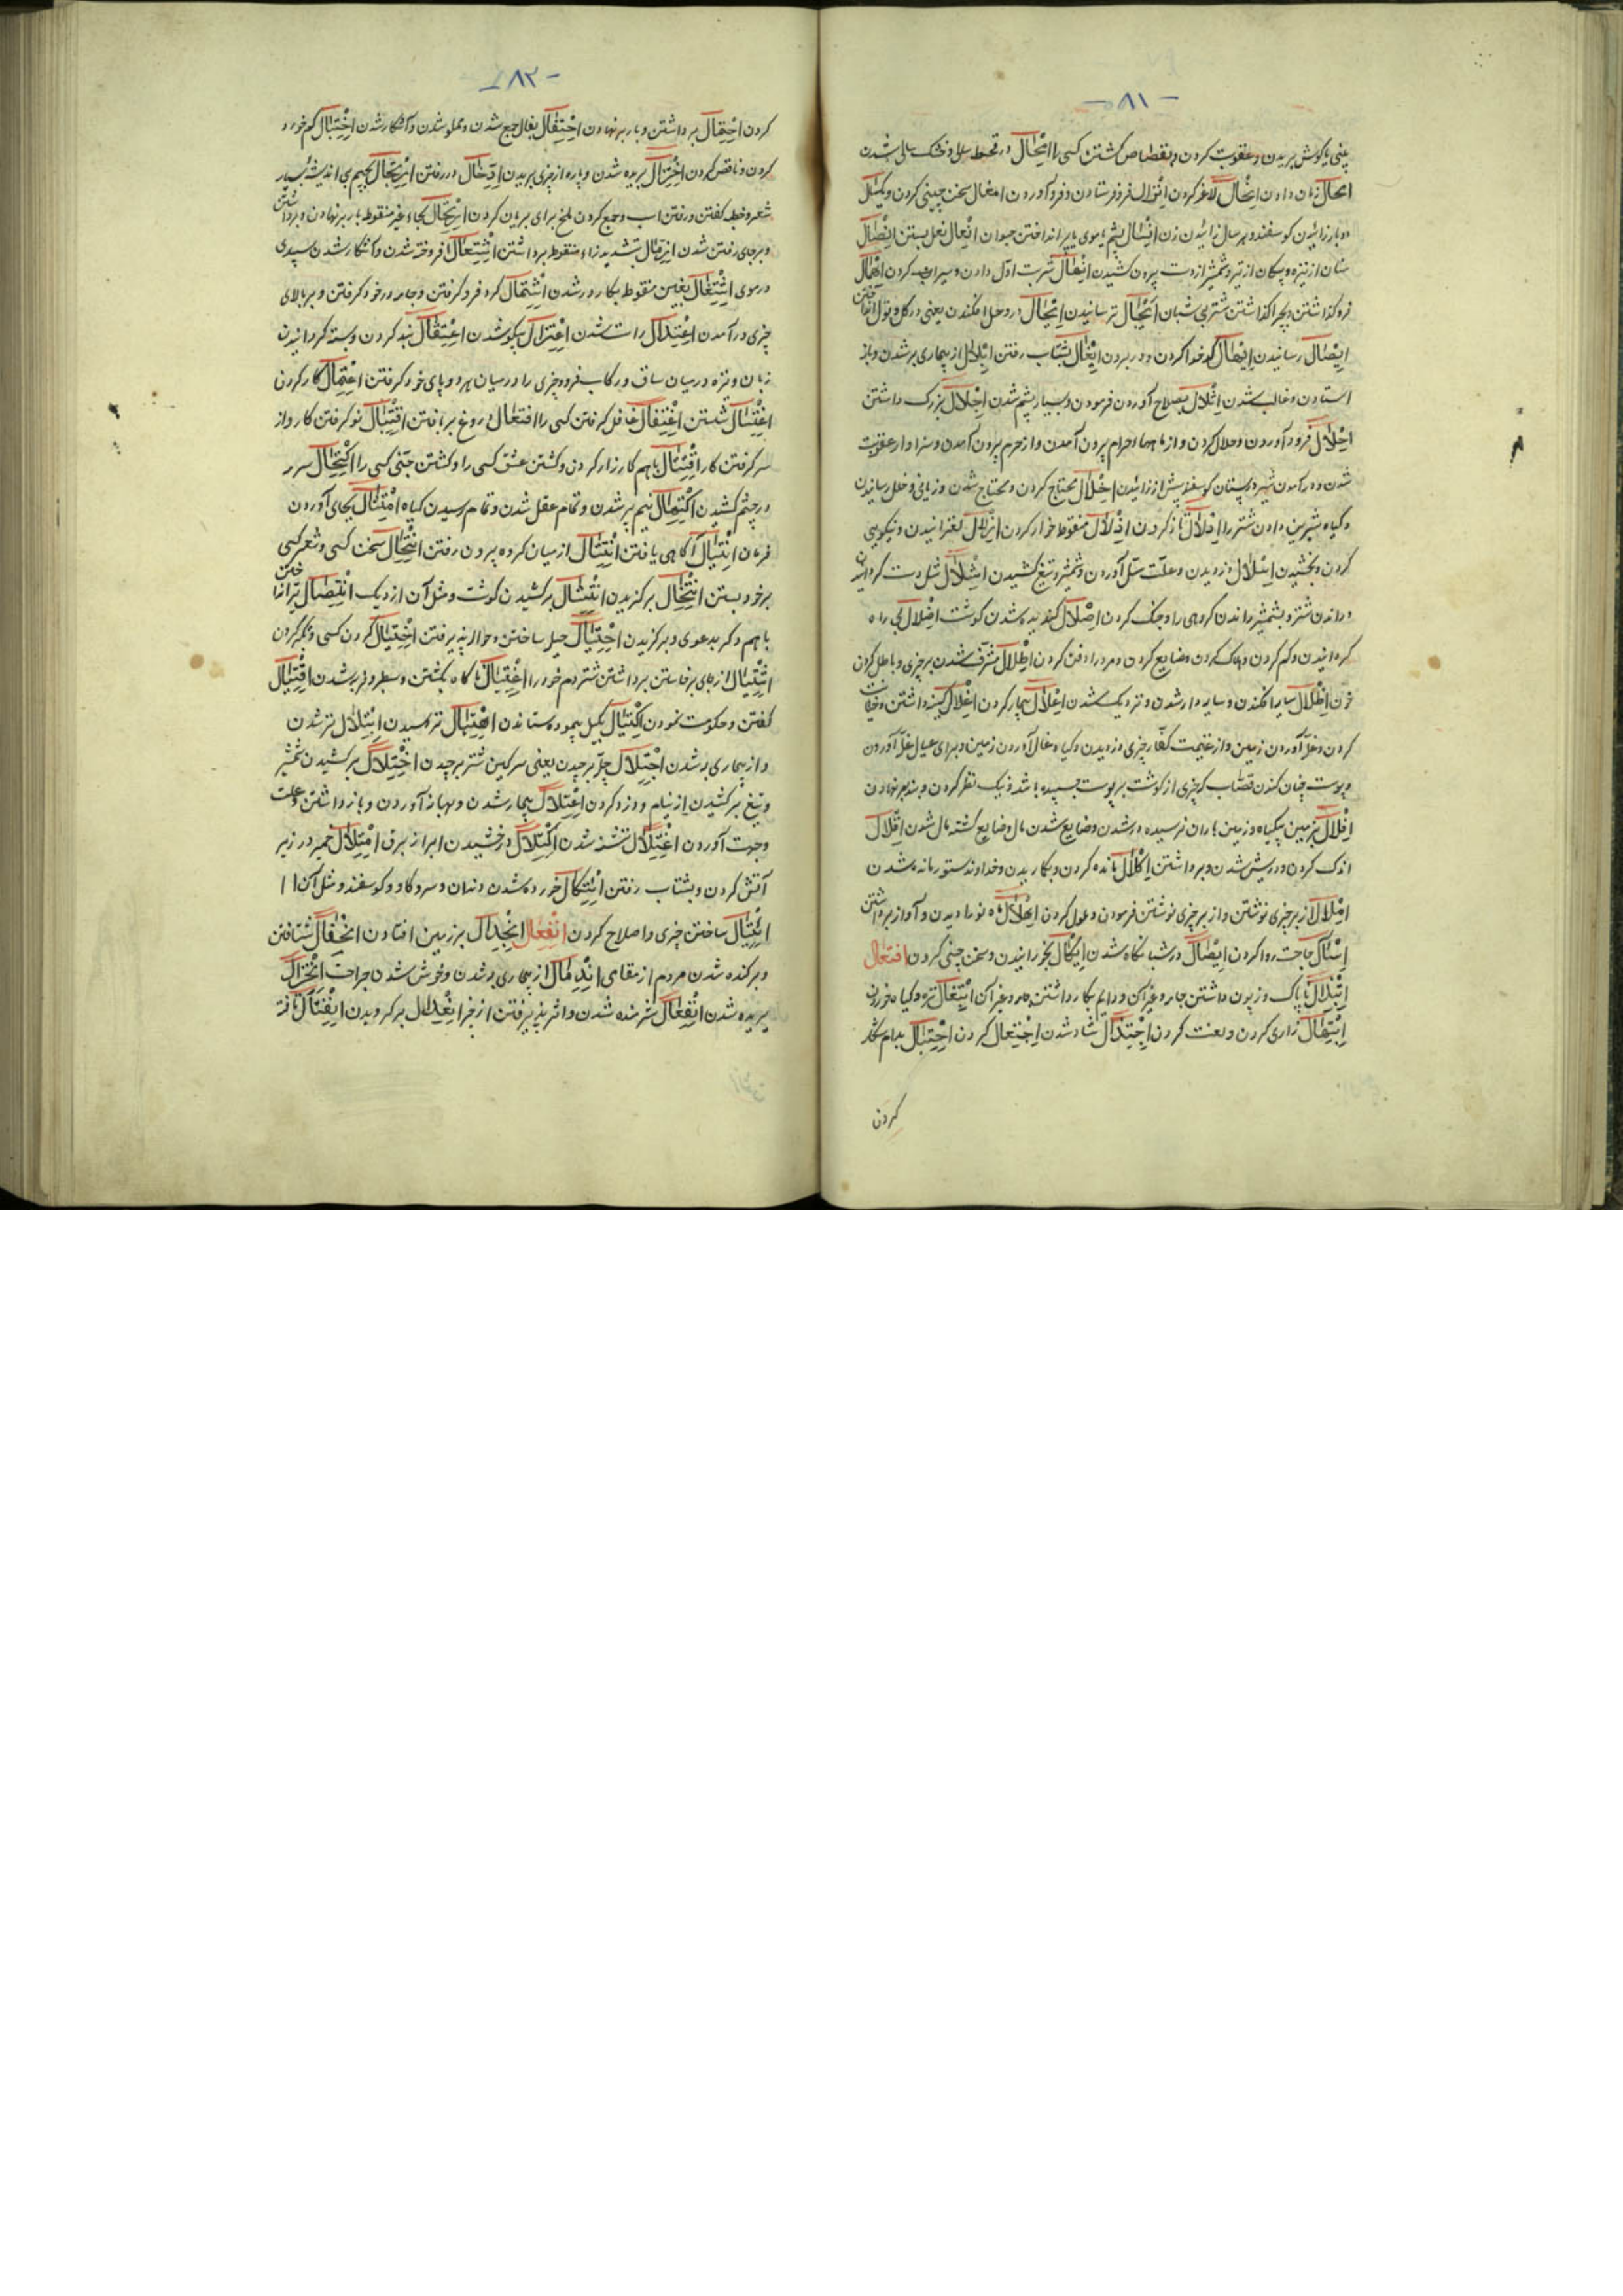 -٨١-
بینی یا گوش بریدن و عقوبت کردن و بقصاص کشتن کسی را امحال در قحط سالی و خشک سالی شدن
امحال زمان دادن انحال لاغر کردن انزال فرو فرستادن و فرود آوردن انمال سخن چینی کردن و یکسال
دوبار زائیدن گوسفند و هر سال زائیدن زن انسال پشم یا موی یا پر انداختن حیوان انعال نعل بستن انصال
سنان از نیزه و پیکان از تیر و شمشیر از دست بیرون کشیدن انهال شربت اول دادن و سیراب کردن اهمال
فرو گذاشتن و بچرا گذاشتن شتر بی شبان ایجال ترسانیدن ایحال در وحل افکندن یعنی در گل و
ایصال رسانیدن ایهال کدخدا کردن و در بردن ایغال بشتاب رفتن ابلال از بیماری بر شدن و باز
استادن و غالب شدن اثلال بصلاح آوردن فرمودن و بسیار پشم شدن اجلال بزرگ داشتن
احلال فرود آوردن و حلال کردن و از ماهها حرام بیرون آمدن و از حرم بیرون آمدن و سزاوار عقوبت
شدن و در آمدن شیر در پستان گوسفند پیش از زائیدن اخلال محتاج کردن و محتاج شدن و زیانی و خلل رسانیدن
و گیاه شیرین دادن شتر را ادلال ناز کردن اذلال منقوط خوار کردن ازلال لغزانیدن و نیکویی
کردن و بخشیدن اسلال دزدیدن و علت سل آوردن و شمشیر و تیغ کشیدن اشلال شل دست گردانیدن
و راندن شتر و بشمشیر راندن گروهی را و جنگ کردن اصلال گندیده شدن گوشت اضلال بی راه
گردانیدن و گم کردن و هلاک کردن و ضایع کردن و مرده را دفن کردن اطلال مشرف شدن بر چیزی و باطل کردن
خون اظلال سایه افکندن و سایه دار شدن و نزدیک شدن اعلال بیمار کردن اغلال کینه داشتن و خیانت
کردن و غله آوردن زمین و از غنیمت کفار چیزی دزدیدن و گیاه غال آوردن زمین و برای عیال غله آوردن
و پوست چنان کندن قصاب که چیزی از گوشت بر پوست چسپیده باشد و نیک نظر کردن و بند بر نهادن
افلال بزمین بیگیاه و زمین باران نرسیده در شدن و ضایع شدن مال و ضایع گشته مال شدن اقلال
اندک کردن و درویش شدن و برداشتن اکلال مانده کردن و بکار بریدن و خداوند ستور مانده شدن
املال از بر چیزی نوشتن و از بر چیزی نوشتن فرمودن و ملول کردن اهلال ماه نو را دیدن و آواز برداشتن
اسئال حاجت روا کردن ایصال در شبانگاه شدن ایکال بخورانیدن و سخن چینی کردن افتعال
ابتذال ناپاک و زبون داشتن جامه و غیر آن و دایم بکار داشتن جامه و غیر آن ابتقال تره و گیاه خوردن
ابتهال زاری کردن و لعنت کردن اجتذال شاد شدن اجتعال کردن احتبال بدام شکار
کردن
-٨٢-
کردن احتمال برداشتن و بار بر نهادن احتفال بفا جمع شدن و مملو شدن و آشکار شدن اختبال کم خرد
کردن و ناقص کردن اختزال بریده شدن و پاره از چیزی بریدن ادخال در رفتن ارتجال بجیم بی اندیشه بسیار
شعر و خطبه گفتن و رفتن اسب و جمع کردن ملخ برای بریان کردن ارتحال بحاء غیر منقوط بار بر نهادن و برداشتن
و بر جای رفتن شدن ازمال بتشدید زاء منقوط برداشتن اشتعال افروخته شدن و آشکار شدن سپیدی
در موی اشتغال بغین منقوط بکار در شدن اشتمال گرد فرو گرفتن و جامه در خود گرفتن و بر بالای
چیزی در آمدن اعتدال راست شدن اعتزال یکسو شدن اعتقال بند کردن و بسته گردانیدن
زبان و نیزه در میان ساق و رکاب فرود چیزی را در میان هر دو پای خود گرفتن اعتمال کار کردن
اغتسال شستن اغتفال غافل گرفتن کسی را افتعال دروغ بر بافتن اقتبال نو گرفتن کار و از
سر گرفتن کار اقتتال با هم کارزار کردن و کشتن عشق کسی را و کشتن جنی کسی را اکتحال سرمه
در چشم کشیدن اکتهال نیم پیر شدن و تمام عقل شدن و تمام رسیدن گیاه امتثال بجای آوردن
فرمان انتبال آگاهی یافتن انتثال از میان گروه بیرون رفتن انتحال سخن کسی و شعر کسی
بر خود بستن انتخال برگزیدن انتشال برکشیدن گوشت و مثل آن از دیگ انتضال تیر انداختن
با هم دگر بدعوی و برگزیدن احتیال حیله ساختن و حواله پذیرفتن اختیال کردن کسی و تکبر کردن
انتقال از جای برخاستن برداشتن شتر دم خود را اغتیال ناگاه بکشتن و سطبر و فربه شدن اقتیال
گفتن و حکومت نمودن اکتیال بکیل پیموده ستاندن اهتبال ترسیدن ابتلال تر شدن
و از بیماری به شدن اجتلال جله برچیدن یعنی سرگین شتر برچیدن اختلال برکشیدن شمشیر
و تیغ برکشیدن از نیام و دزد کردن اعتلال بیمار شدن و بهانه آوردن و باز داشتن و علت
و حجت آوردن اغتلال تشنه شدن اکتلال درخشیدن ابر از برق امتلال خمیر در زیر
آتش کردن و بشتاب رفتن ائتکال خورده شدن دندان و سرو گاو و گوسفند و مثل آن
ائتثال ساختن چیزی و اصلاح کردن انفعال انجدال بر زمین افتادن انجفال شتافتن
و برکنده شدن مردم از مقامی اندمال از بیماری به شدن و خوش شدن جراحت انخزال
بریده شدن انفعال شرمنده شدن و اثر پذیرفتن از چیز انعدال برگردیدن انفتال تافته